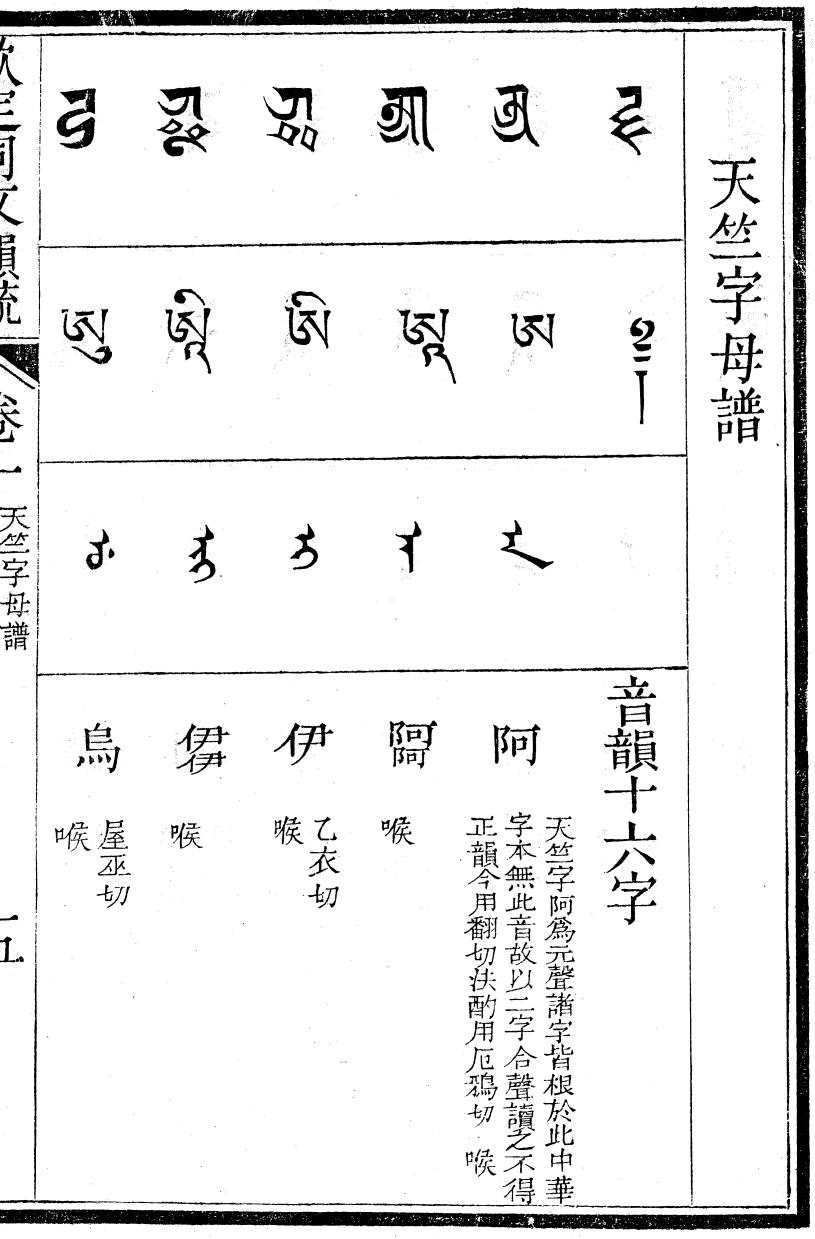 天竺字母譜
༄༅།
音韻十六字
ཨ
阿
天竺字阿爲元聲諸字皆根於此中華
字本無此音故以二字合聲讀之不得
正韻今用翻切法酌用厄鴉切 喉
ཨཱ
阿阿
喉
ཨི
伊
乙衣切
喉
ཨཱི
伊伊
喉
ཨུ
烏
屋巫切
喉
欽定同文韻統
卷一
天竺字母譜
五